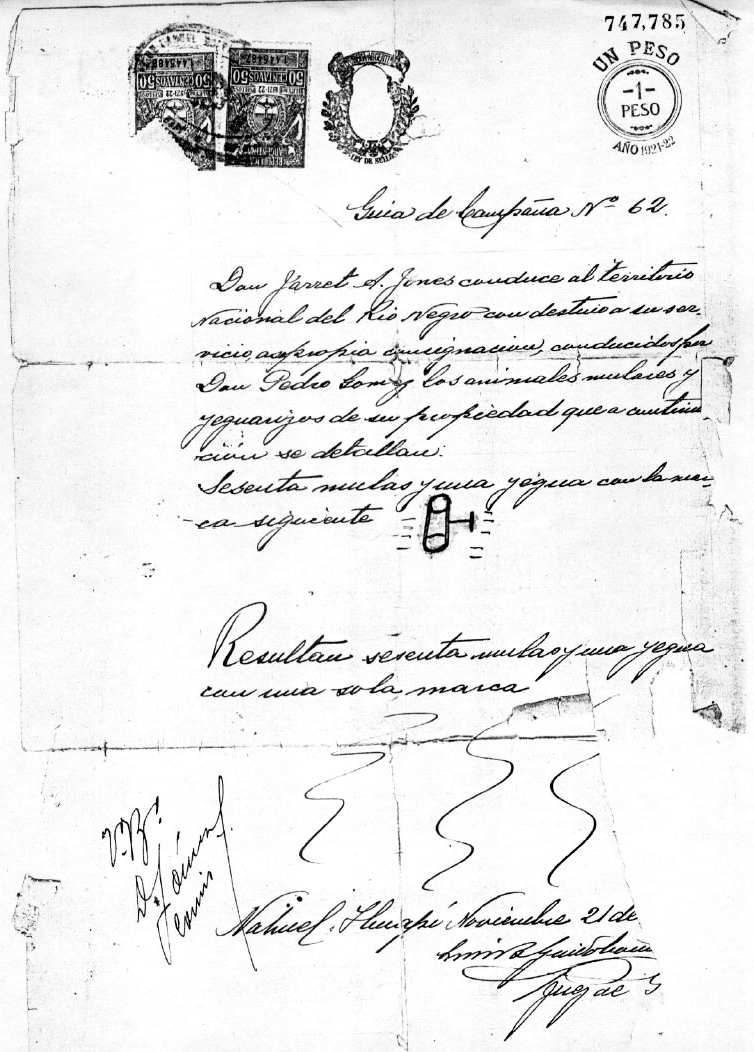 747,785
UN PESO
-1-
PESO
AÑO 1921-22
50 CENTAVOS 50
50 CENTAVOS 50
LEY DE SELLOS
Guia de Campaña Nº 62.
Don Jarret A. Jones conduce al territorio
Nacional del Rio Negro con destino a su ser-
vicio, a propia consignacion, conducidos por
Don Pedro Gomez los animales mulares y
yeguarizos de su propiedad que a continua
ción se detallan:
Sesenta mulas y una yegua con la mar-
-ca siguiente
Resultan sesenta mulas y una yegua
con una sola marca
V.º B.º
Nahuel Huapí Noviembre 21 de
Juez de